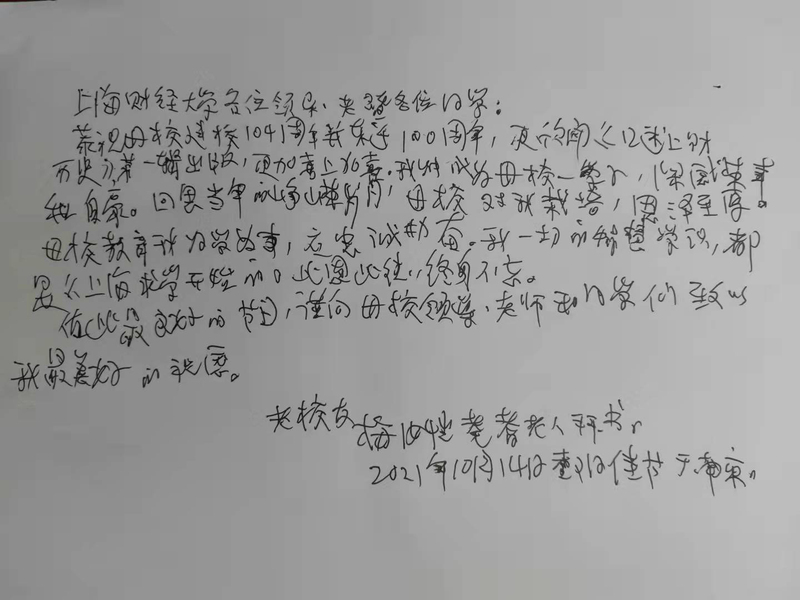 上海财经大学各位领导、老师各位同学：
恭祝母校建校104周年我东迁100周年，更欣闻《口述上财
历史》第一辑出版，更加喜上加喜。我作为母校一学子，深感荣幸
和自豪。回思当年的峥嵘岁月，母校对我栽培，恩泽至厚。
母校教育我为学为事，应忠诚勤奋。我一切的 学识，都
是从上海求学开始的。此恩此德，终身不忘。
值此最美好的节日，谨向母校领导、老师和同学们致以
我最美好的祝愿。
老校友 老人拜书。
2021年10月14日重阳佳节于南京。